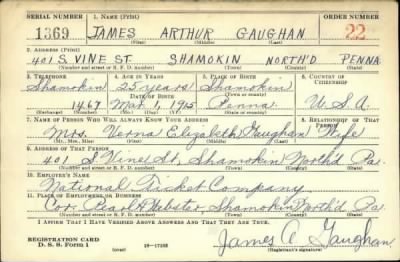 SERIAL NUMBER 1. NAME (Print) ORDER NUMBER
1369 JAMES ARTHUR GAUGHAN 22
(First) (Middle) (Last)
2. ADDRESS (Print)
401 S. VINE ST. SHAMOKIN NORTH'D PENNA
(Number and street or R. F. D. number) (Town) (County) (State)
3. TELEPHONE 4. AGE IN YEARS 5. PLACE OF BIRTH 6. COUNTRY OF CITIZENSHIP
Shamokin 25 years Shamokin
DATE OF BIRTH
1467 Mar. 1, 1915 Penna. U.S.A.
(Exchange) (Number) (Mo.) (Day) (Yr.) (State or country)
7. NAME OF PERSON WHO WILL ALWAYS KNOW YOUR ADDRESS 8. RELATIONSHIP OF THAT PERSON
Mrs. Verna Elizabeth Gaughan Wife
(Mr., Mrs., Miss) (First) (Middle) (Last)
9. ADDRESS OF THAT PERSON
401 S Vine St, Shamokin North'd Pa.
(Number and street or R. F. D. number) (Town) (County) (State)
10. EMPLOYER'S NAME
National Ticket Company
11. PLACE OF EMPLOYMENT OR BUSINESS
Cor. Pearl & Webster, Shamokin North'd Pa.
(Number and street or R. F. D. number) (Town) (County) (State)
I AFFIRM THAT I HAVE VERIFIED ABOVE ANSWERS AND THAT THEY ARE TRUE.
REGISTRATION CARD
D. S. S. Form 1 (over) 16—17105
James A Gaughan
(Registrant's signature)